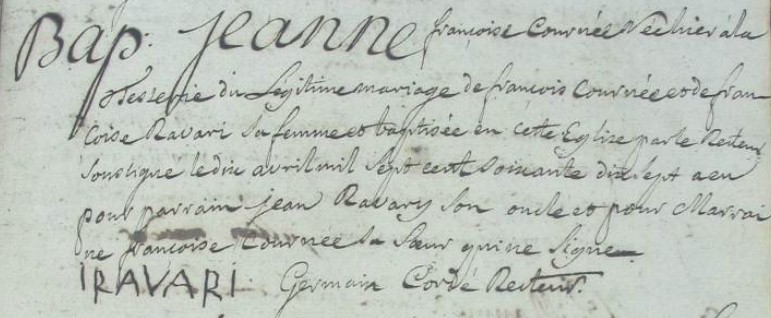 Bap. jeanne françoise Cournée née hier à la
Tesserie du Légitime mariage de françois Cournée et de fran
çoise Ravari sa femme et baptisée en cette Eglise par le Recteur
soussigné le dix avril mil sept cent soixante dix sept a eu
pour parrain jean Ravary son oncle et pour Marrai
ne françoise Cournée sa sœur qui ne signe
IRAVARI Germain Cordé Recteur.